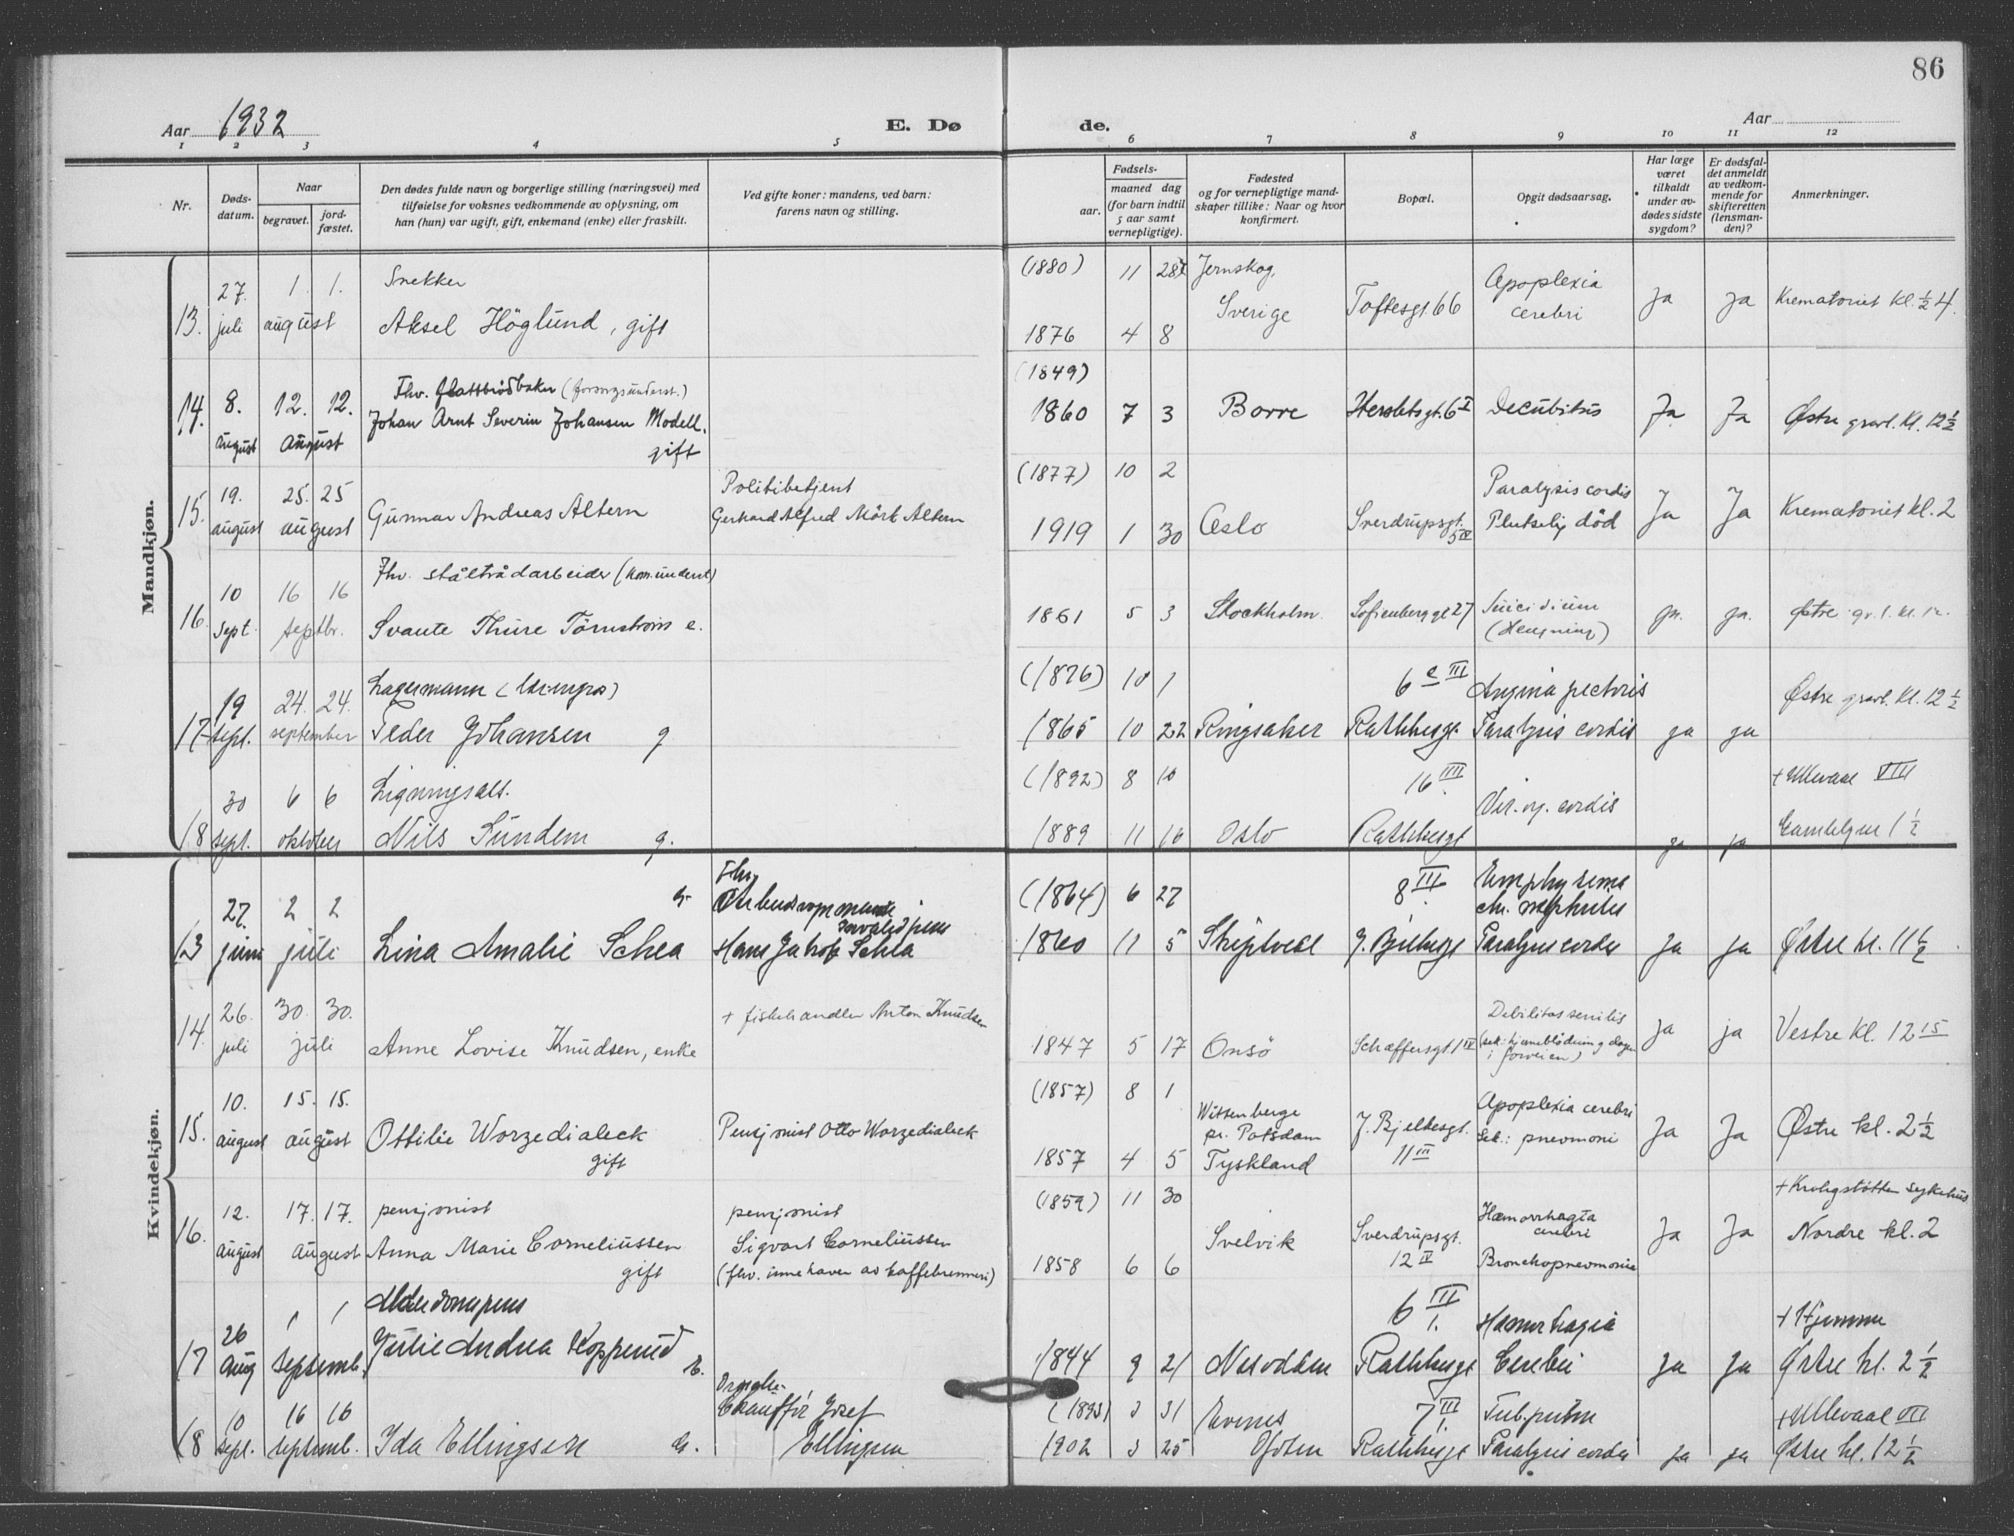 86
Aar 1932
E. Dø de.
Aar
1 2 3 4 5 6 7 8 9 10 11 12
Nr.
Døds-
datum.
Naar
begravet.
jord-
fæstet.
Den dødes fulde navn og borgerlige stilling (næringsvei) med
tilføielse for voksnes vedkommende av oplysning, om
han (hun) var ugift, gift, enkemand (enke) eller fraskilt.
Ved gifte koner: mandens, ved barn:
farens navn og stilling.
Fødsels-
aar.
maaned dag
(for barn indtil
5 aar samt
vernepligtige).
Fødested
og for vernepligtige mand-
skaper tillike: Naar og hvor
konfirmert.
Bopæl.
Opgit dødsaarsag.
Har læge
været
tilkaldt
under av-
dødes sidste
sygdom?
Er dødsfal-
det anmeldt
av vedkom-
mende for
skifteretten
(lensman-
den)?
Anmerkninger.
Mandkjøn.
13. 27. juli 1. 1. august
Snekker
Aksel Höglund, gift
(1880) 11 28
1876 4 8
Jernskog,
Sverige
Toftesgt. 66
Apoplexia
cerebri
Ja Ja
Krematoriet kl. ½ 4.
14. 8. august 12. 12. august
Fhv. flattbrødbaker
Johan Arnt Severin Johansen Modell.
gift
(1849)
1860 7 3
Borre
Herslebsgt. 6 I
Decubitus
Ja Ja
Østre gravl. kl. 12 ½
15. 19. august 25. 25 august
Gunnar Andreas Altern
Politibetjent
Gerhard Alfred Mörk Altern
(1877) 10 2
1919 1 30
Oslo
Sverdrupsgt.
5 IV
Paralysis cordis
Plutselig död
Ja Ja
Krematoriet kl. 2
16. 10 sept. 16 16 septbr.
Fhv. ståltrådarbeider (kom.underst)
Svante Thure Törnström e.
1861 5 3
Stockholm.
Sofienberggt 27
Suicidium
(Hengning)
ja. ja.
Østre gr.l. kl. 12.
17 19 sept. 24. 24. september
Lagermann
Peder Johansen g
(1876) 10 1
1865 10 22
Ringsaker
6 c III
Rathkesgt.
Angina pectoris
Paralysis cordis
ja ja
Østre gravl. kl. 12 ½
18 30 sept. 6 6 oktober
Ligningsass.
Nils Sundem g.
(1892) 8 10
1889 11 16
Oslo
16 IIII
Rathkesgt
Vit. org. cordis
ja ja
+ Ullevaal VIII
Gamlebyen 1 ½
Kvindekjøn.
13 27. juni 2 2 juli
Lina Amalie Schea g.
Fhv.
Hans Jakob Schea
(1864) 6 27
1860 11 5
Skiptvedt
8 III
J. Bjelkesgt
Emphysema
chr. nephritis
Paralysis cordis
Ja ja
Østre kl. 11 ½
14. 26. juli 30. 30. juli
Anne Lovise Knudsen, enke
+ fiskehandler Anton Knudsen
1847 5 17
Onsö
Schæffersgt. 1 IV
Debilitas senilis
(sek: hjerneblödning dagen
i forveien)
Ja ja
Vestre kl. 12 15
15. 10. august 15. 15. august
Ottilie Worzedialeck
gift
Pensjonist Otto Worzedialeck
(1857) 8 1
1857 4 5
Wittenberge
pr. Potsdam
Tyskland
J. Bjelkesgt.
11 III
Apoplexia cerebri
Sek.: pneumoni
Ja Ja
Østre kl. 2 ½
16. 12. august 17. 17. august
pensjonist
Anna Marie Corneliussen
gift
pensjonist
Sigvart Corneliussen
(fhv. innehaver av kaffebrenneri)
(1859) 11 30
1858 6 6
Svelvik
Sverdrupsgt.
12 IV
Hæmorrhagia
cerebri
Bronchopneumonia
Ja Ja
+ Krohgstötten sykehus
Nordre kl. 2
17 26 Aug 1 1 septemb.
Alderdomspens
Julie Andrea Kopperud e.
1844 9 21
Nesodden
6 III
1.
Rathkesgt
Hæmorhagia
Cerebri
Ja Ja
+ Hjemme
Østre kl. 2 ½
18 10 sept. 16 16 septemb.
Ida Ellingsen g.
Drosje-
Chauffør Josef
Ellingsen
(1893) 3 31
1902 3 25
Evenes
Ofoten
7 III
1.
Rathkesgt
Tub. pulm
Paralysis cordis
ja ja
+ Ullevaal VII
Østre kl. 12 ½